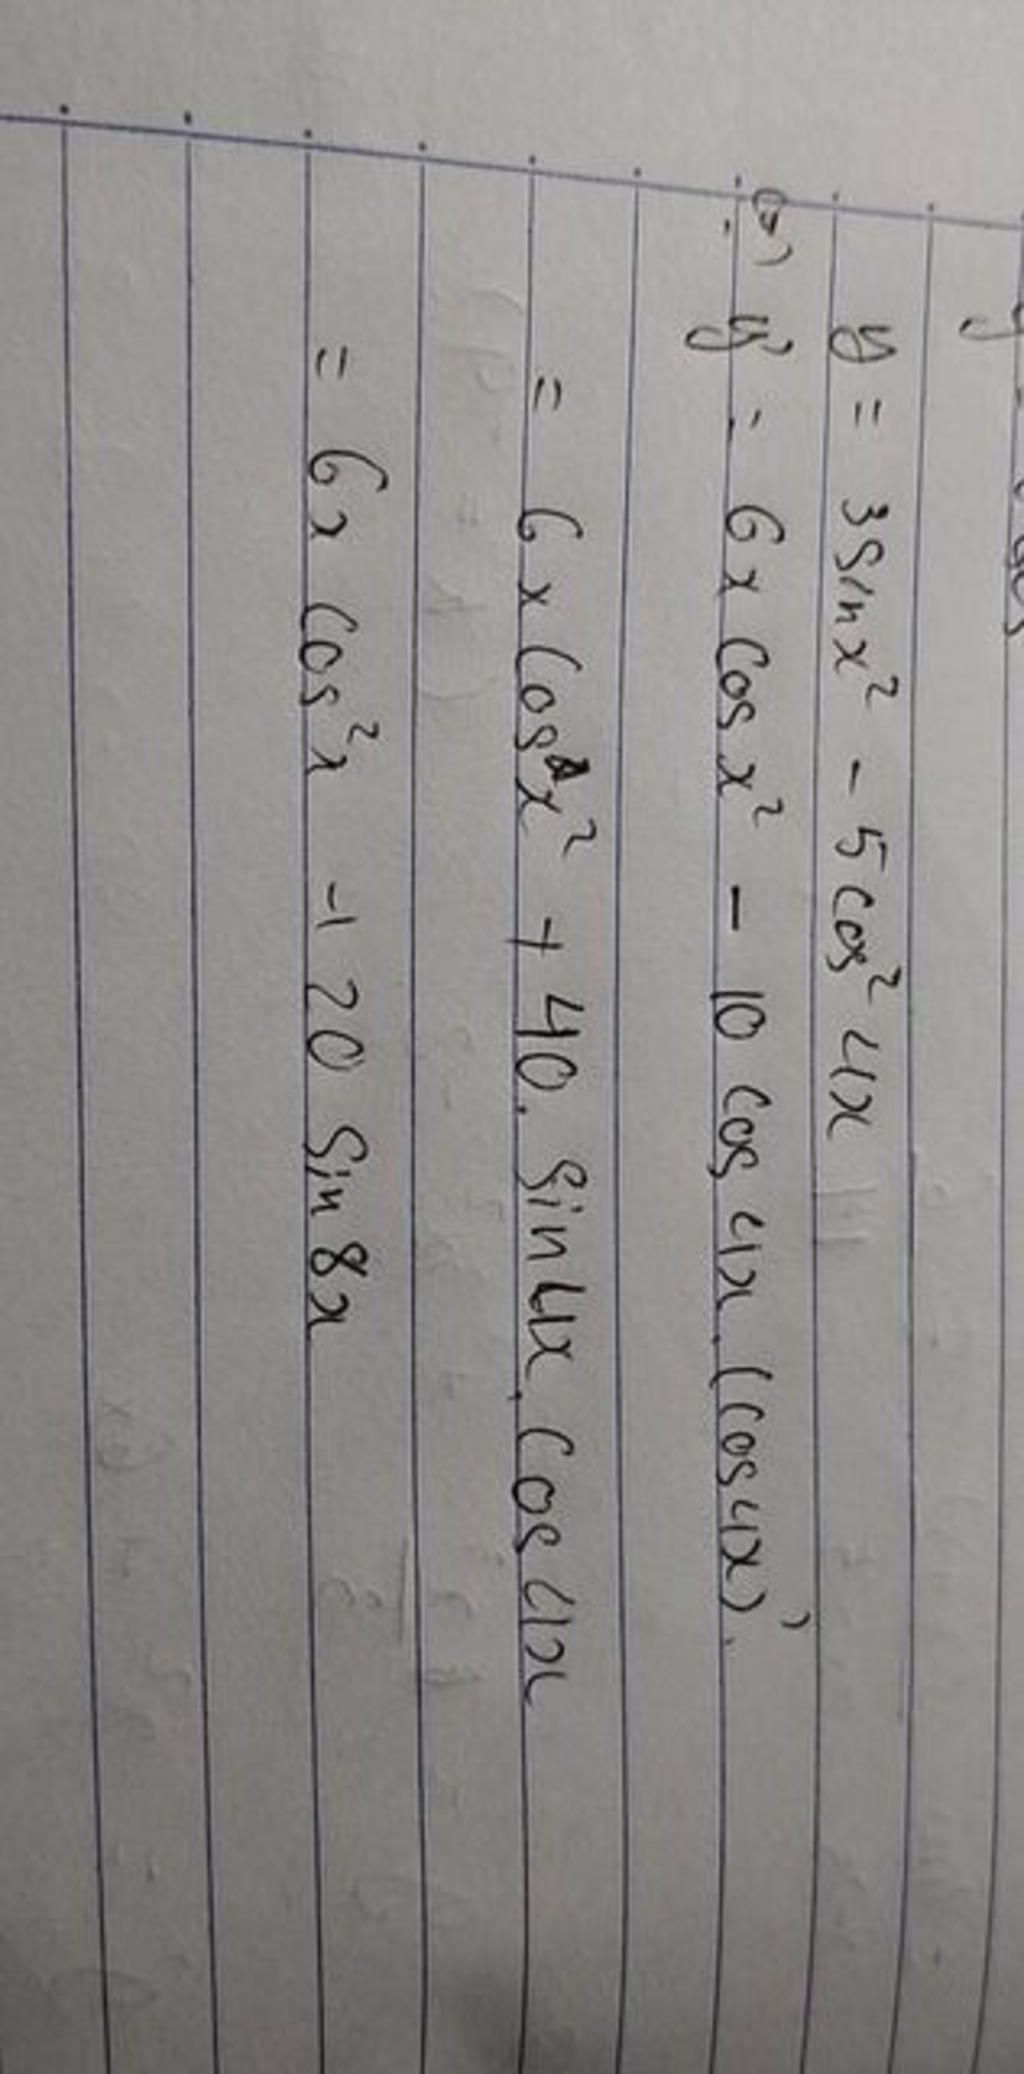 y = 3sinx² - 5cos²4x
(=) y' = 6x cosx² - 10 cos4x.(cos4x)'.
= 6x cosx² + 40. sin4x. cos4x
= 6x cos²x + 20 sin8x